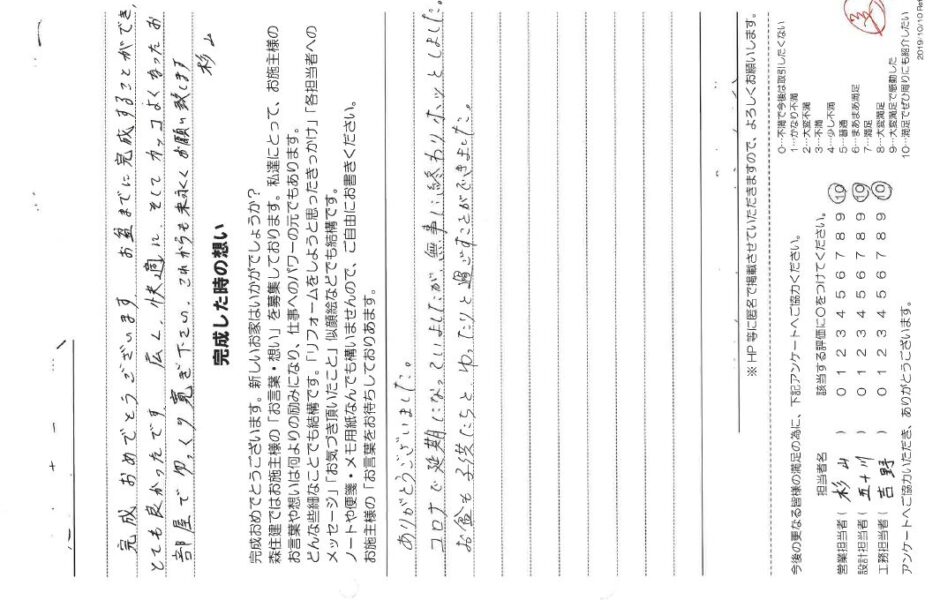 完成 おめでとうございます お盆までに完成することができ、
とても良かったです 広く、快適に そしてカッコよくなったお
部屋で ゆっくり寛ぎ下さい、これからも末永くお願い致します
杉山
完成した時の想い
完成おめでとうございます。新しいお家はいかがでしょうか?
森住建ではお施主様の「お言葉・想い」を募集しております。 私達にとって、お施主様の
お言葉や想いは何よりの励みになり、仕事へのパワーの元でもあります。
どんな些細なことでも結構です。「リフォームをしようと思ったきっかけ」「各担当者への
メッセージ」「お気づき頂いたこと」似顔絵などでも結構です。
ノートや便箋・メモ用紙なんでも構いませんので、ご自由にお書きください。
お施主様の「お言葉をお待ちしておりあます。
ありがとうございました。
コロナで延期になっていましたが 無事に終わりホッとしました。
お盆も子供たちと ゆったりと過ごすことができました。
※HP等に匿名で掲載させていただきますので、よろしくお願いします。
今後の更なる皆様の満足の為に、下記アンケートへご協力ください。
担当者名 該当する評価に○をつけてください。
営業担当者( 杉山 ) 0 1 2 3 4 5 6 7 8 9 10
設計担当者( 五十川 ) 0 1 2 3 4 5 6 7 8 9 10
工務担当者( 吉野 ) 0 1 2 3 4 5 6 7 8 9 10
アンケートへご協力いただき、ありがとうございます。
0…不満で今後は取引したくない
1…かなり不満
2…大変不満
3…不満
4…少し不満
5…普通
6…まあまあ満足
7…満足
8…大変満足
9…大変満足で感動した
10…満足でぜひ周りにも紹介したい
2019/10/10